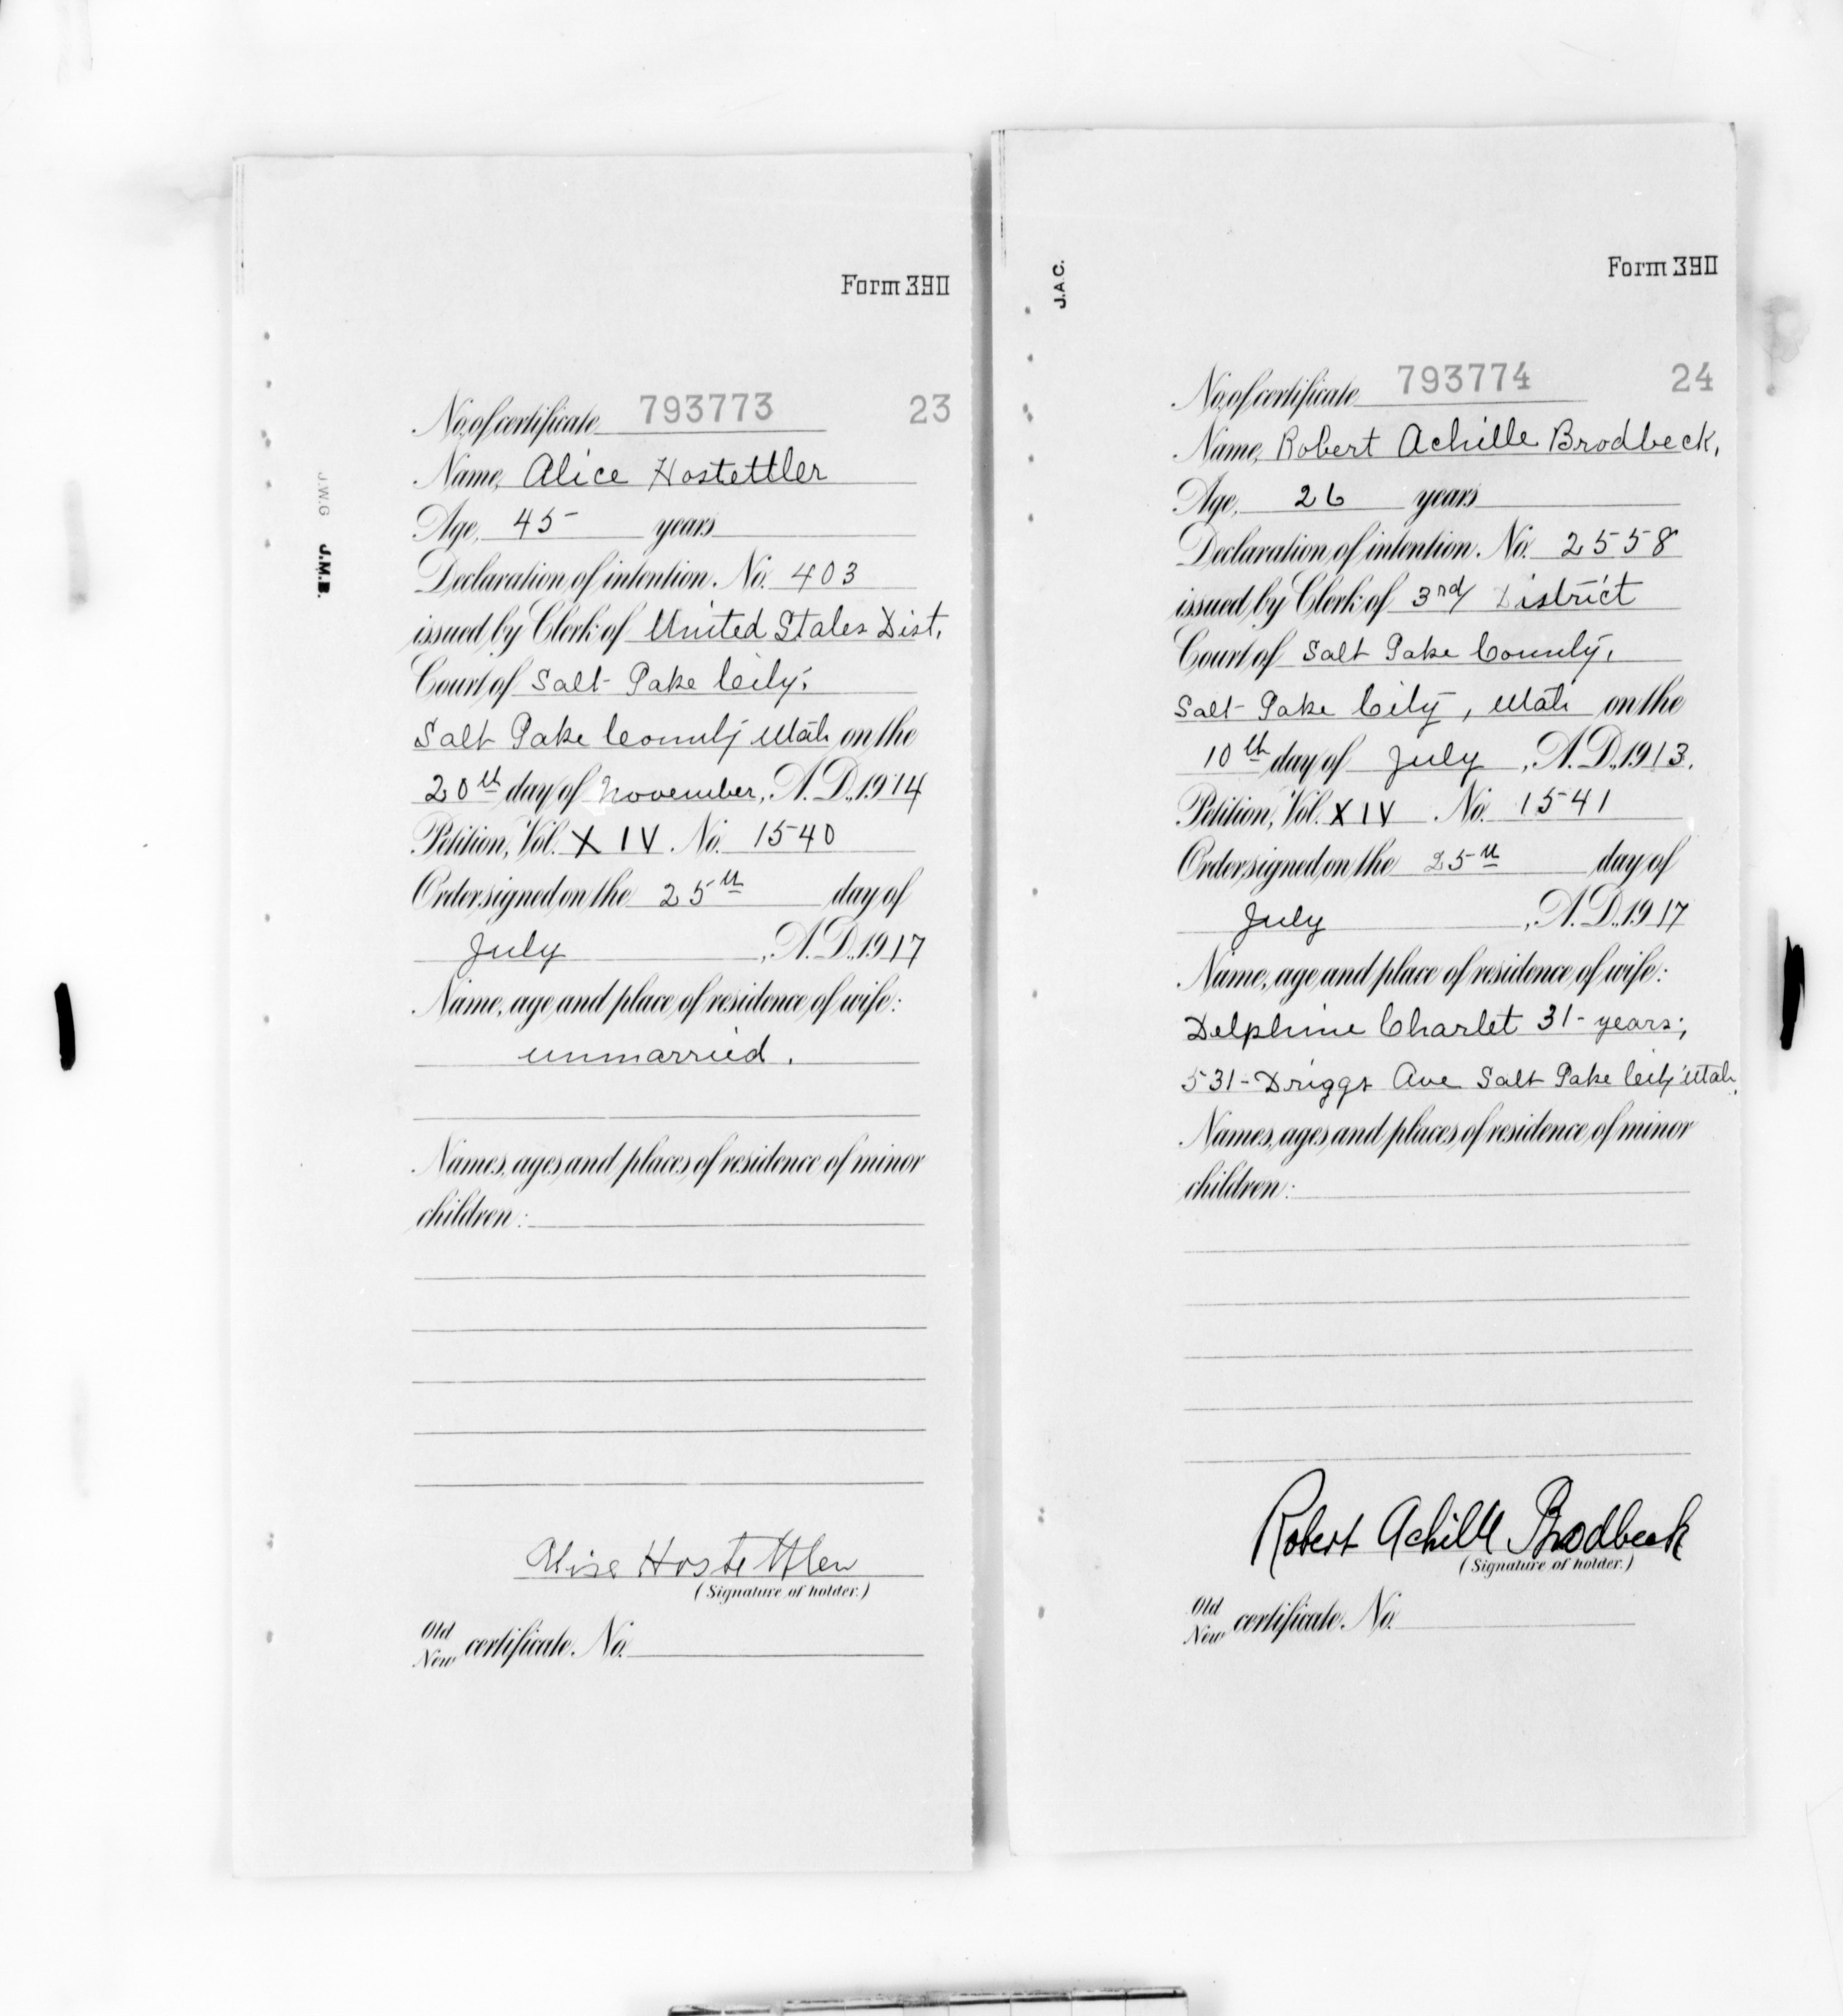 Form 390
J.W.G J.M.B.
No. of certificate 793773 23
Name, Alice Hostettler
Age, 45 years
Declaration of intention. No. 403
issued by Clerk of United States Dist,
Court of Salt Lake City,
Salt Lake County Utah on the
20th day of November, A.D., 1914
Petition, Vol. XIV. No. 1540
Order signed on the 25th day of
July, A.D., 1917
Name, age and place of residence of wife:
unmarried.
Names, ages and places of residence of minor
children:
Alise Hostettler
(Signature of holder.)
Old
New certificate. No.
Form 390
J.A.C.
No. of certificate 793774 24
Name, Robert Achille Brodbeck,
Age, 26 years
Declaration of intention. No. 2558
issued by Clerk of 3rd District
Court of Salt Lake County,
Salt Lake City, Utah on the
10th day of July, A.D., 1913.
Petition, Vol. XIV No. 1541
Order signed on the 25th day of
July, A.D., 1917
Name, age and place of residence of wife:
Delphine Charlet 31- years;
531- Driggs Ave Salt Lake City Utah.
Names, ages and places of residence of minor
children:
Robert Achille Brodbeck
(Signature of holder.)
Old
New certificate. No.